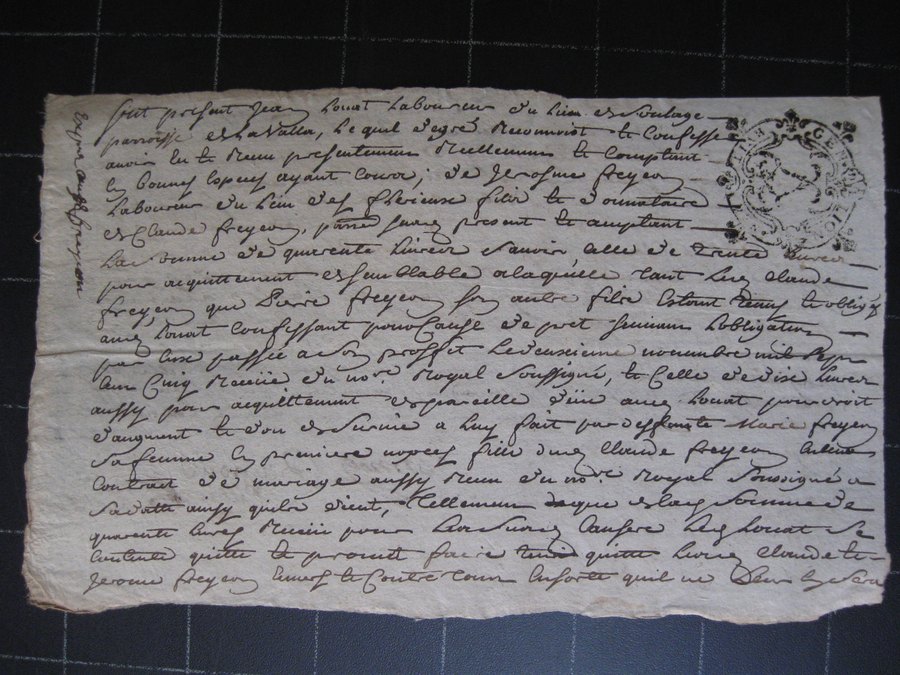 fut présent Jean Louat Laboureur du Lieu de Soulage
parroisse de Lavalla, Lequel de gré Reconnoist et Confesse
avoir eu et Receu presentement Reellement et Comptant
En bonnes Especes ayant cours, de Jerosme freycon
Laboureur du Lieu des flerieuse filz et donnataire
de Claude freycon, present et acceptant
La somme de quarente Livres Savoir, celle de trente Livres
pour acquittement de semblable a laquelle tant Led Claude
freycon que Pierre freycon son autre filz Estoint tenus et obligés
aud Louat Confessant pour Cause de pret suivant Lobligation
par Eux passée a son proffit Le deuxieme novembre mil Sept
Cent Cinq Receüe du nore Royal Soussigné, et Celle de dix Livres
aussy pour acquittement de pareille düe aud Louat pour droit
d'augment et don de Survie a Luy fait par deffunte Marie freycon
Sa femme En premiere nopces fille dud Claude freycon
Contract de mariage aussy Receu du nore Royal Soussigné a
Sa datte ainsy quil a dient, tellement que de lad Somme de
quarente Livres Receüe pour Led Louat Se
Contente quitte et promet faire tenir quitte Lesd Claude et
Jerosme freycon Envers et Contre tous Ensorte quil ne Leur En sera
GENERALITE LION